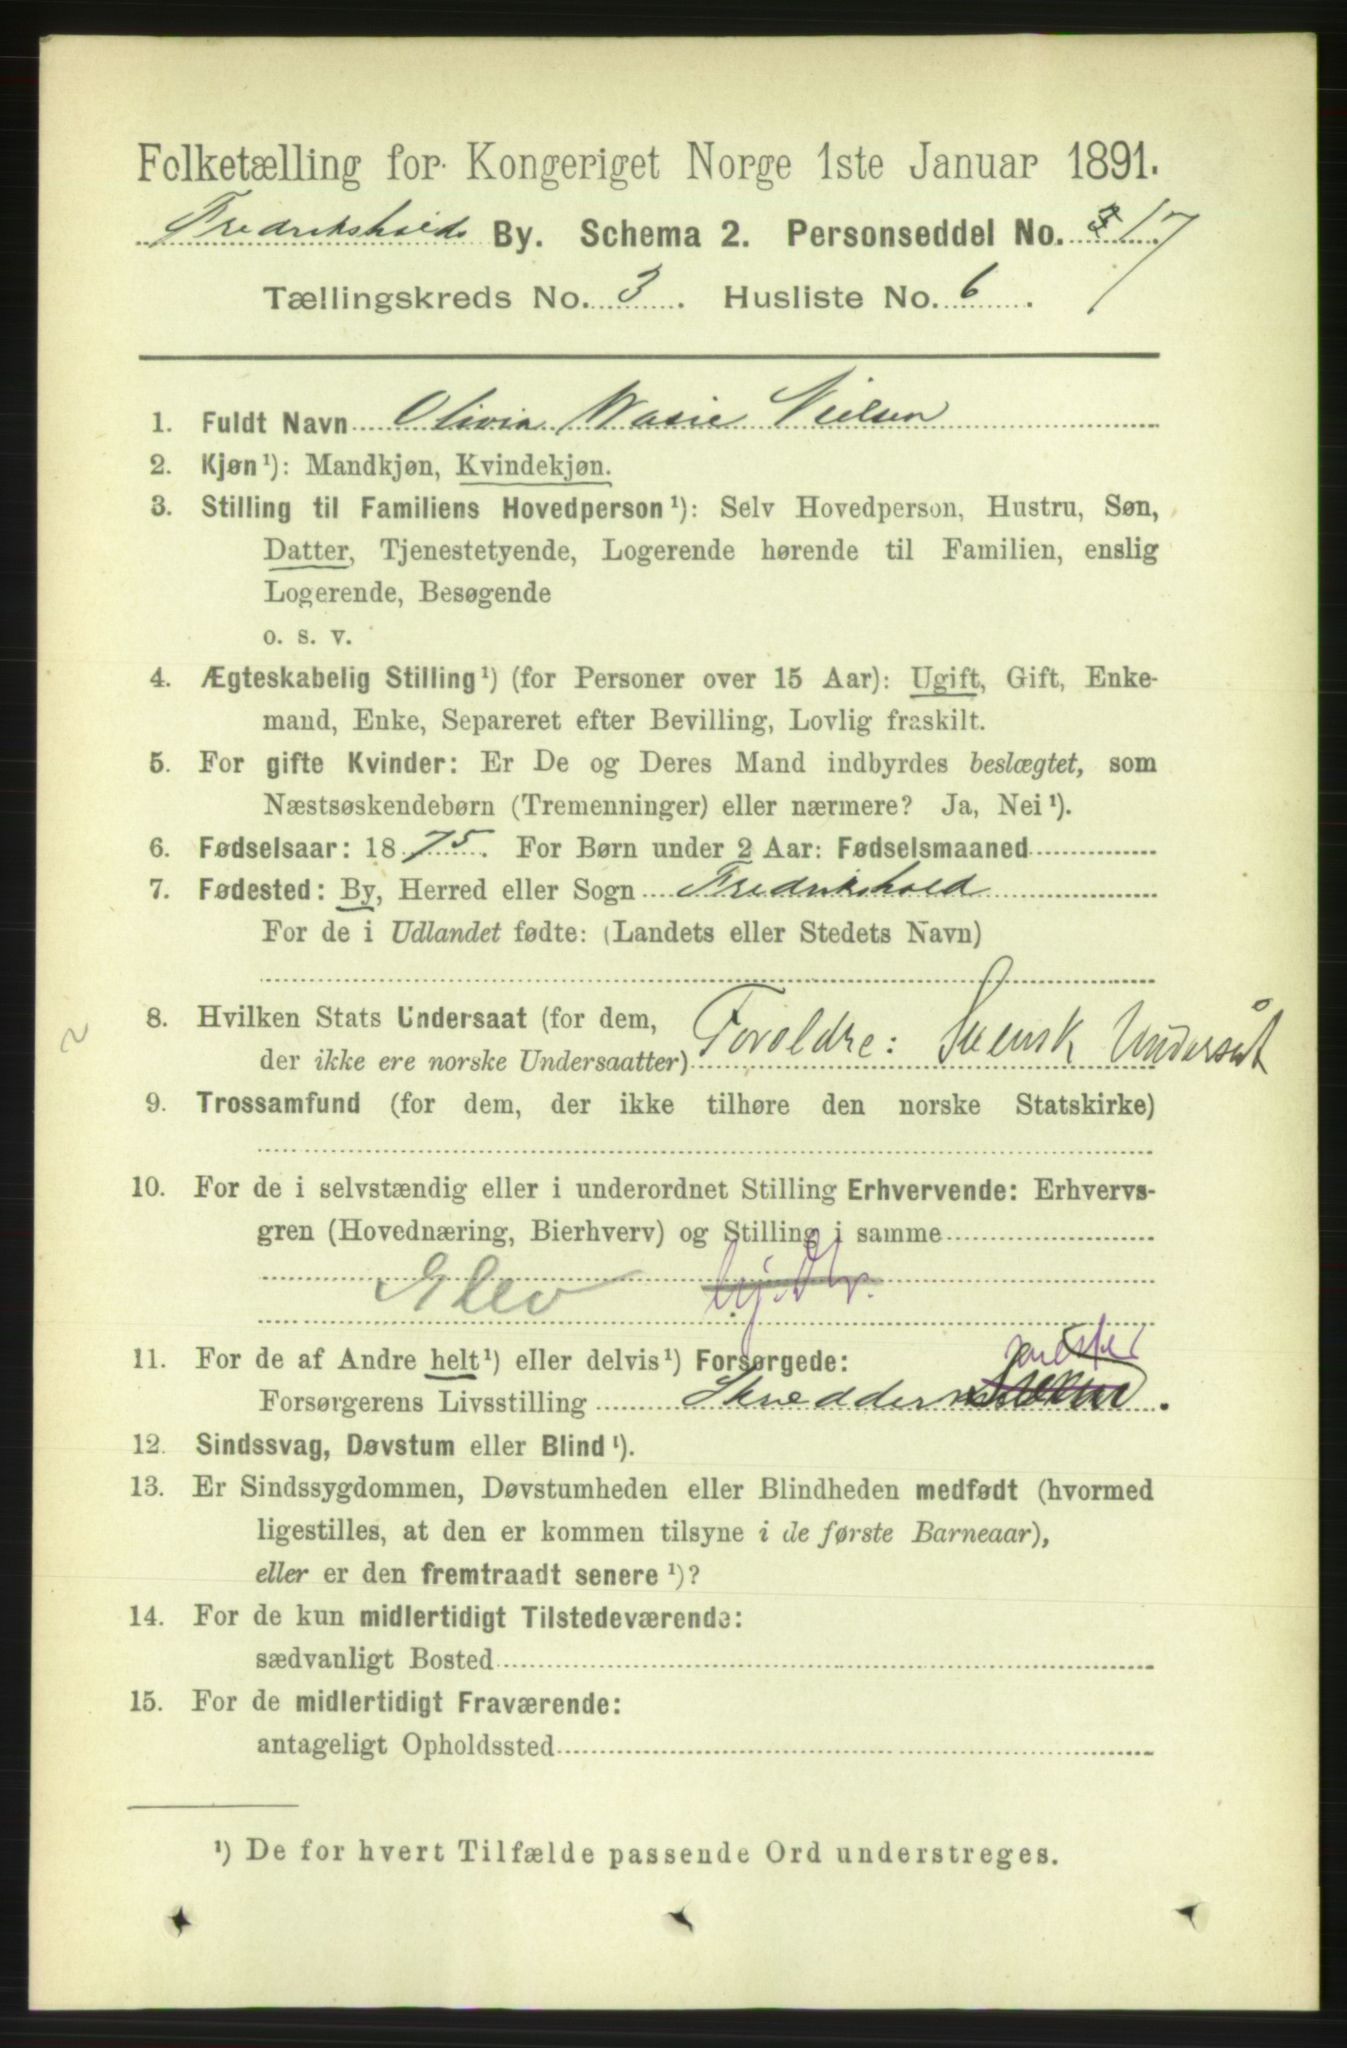 Folketælling for Kongeriget Norge 1ste Januar 1891.
Fredrikshalds By. Schema 2. Personseddel No. 17
Tællingskreds No. 3. Husliste No. 6.
1. Fuldt Navn Olivia Marie Nielsen
2. Kjøn¹): Mandkjøn, Kvindekjøn.
3. Stilling til Familiens Hovedperson¹): Selv Hovedperson, Hustru, Søn,
Datter, Tjenestetyende, Logerende hørende til Familien, enslig
Logerende, Besøgende
o. s. v.
4. Ægteskabelig Stilling¹) (for Personer over 15 Aar): Ugift, Gift, Enke-
mand, Enke, Separeret efter Bevilling, Lovlig fraskilt.
5. For gifte Kvinder: Er De og Deres Mand indbyrdes beslægtet, som
Næstsøskendebørn (Tremenninger) eller nærmere? Ja, Nei¹).
6. Fødselsaar: 1875. For Børn under 2 Aar: Fødselsmaaned
7. Fødested: By, Herred eller Sogn Fredrikshald
For de i Udlandet fødte: (Landets eller Stedets Navn)
8. Hvilken Stats Undersaat (for dem,
der ikke ere norske Undersaatter) Foreldre: Svensk Undersåt
9. Trossamfund (for dem, der ikke tilhøre den norske Statskirke)
10. For de i selvstændig eller i underordnet Stilling Erhvervende: Erhvervs-
gren (Hovednæring, Bierhverv) og Stilling i samme
Elev
11. For de af Andre helt¹) eller delvis¹) Forsørgede:
mester
Forsørgerens Livsstilling Skrædder
12. Sindssvag, Døvstum eller Blind¹).
13. Er Sindssygdommen, Døvstumheden eller Blindheden medfødt (hvormed
ligestilles, at den er kommen tilsyne i de første Barneaar),
eller er den fremtraadt senere¹)?
14. For de kun midlertidigt Tilstedeværende:
sædvanligt Bosted
15. For de midlertidigt Fraværende:
antageligt Opholdssted
¹) De for hvert Tilfælde passende Ord understreges.